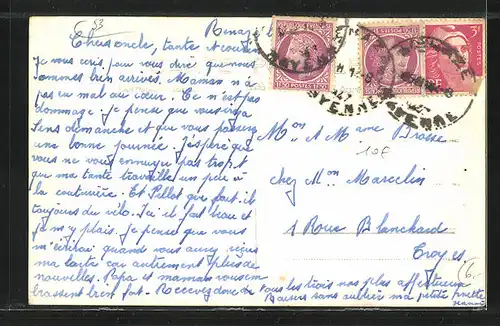 53
Chers oncle, tante et cousin
Je vous écris pour vous dire que nous
sommes bien arrivés. Maman n'a
pas eu mal au cœur. Ce n'est pas
dommage. je pense que
bons dimanche et que vous passez
une bonne journée. J'espère que
vous ne vous ennuyez pas trop et
que ma tante travaille un peu à
la couturière. Et Pillot que fait-il
toujours du vélo. Ici il fait beau et
je m'y plais. Je pense que vous
m'écrirai quand vous aurez reçus
ma lettre car autrement plus de
nouvelles. Papa et maman vous em-
brassent bien fort. Recevez donc de
nous tous les trois nos plus affectueux
Baisers sans oublier ma petite
Mon A Mme Brosse
10F
chez Mon Marcelin
1 Roue Blanchard
Troyes
MAYENNE
MAYENNE
MAYENNE
POSTES
3F
(6.-